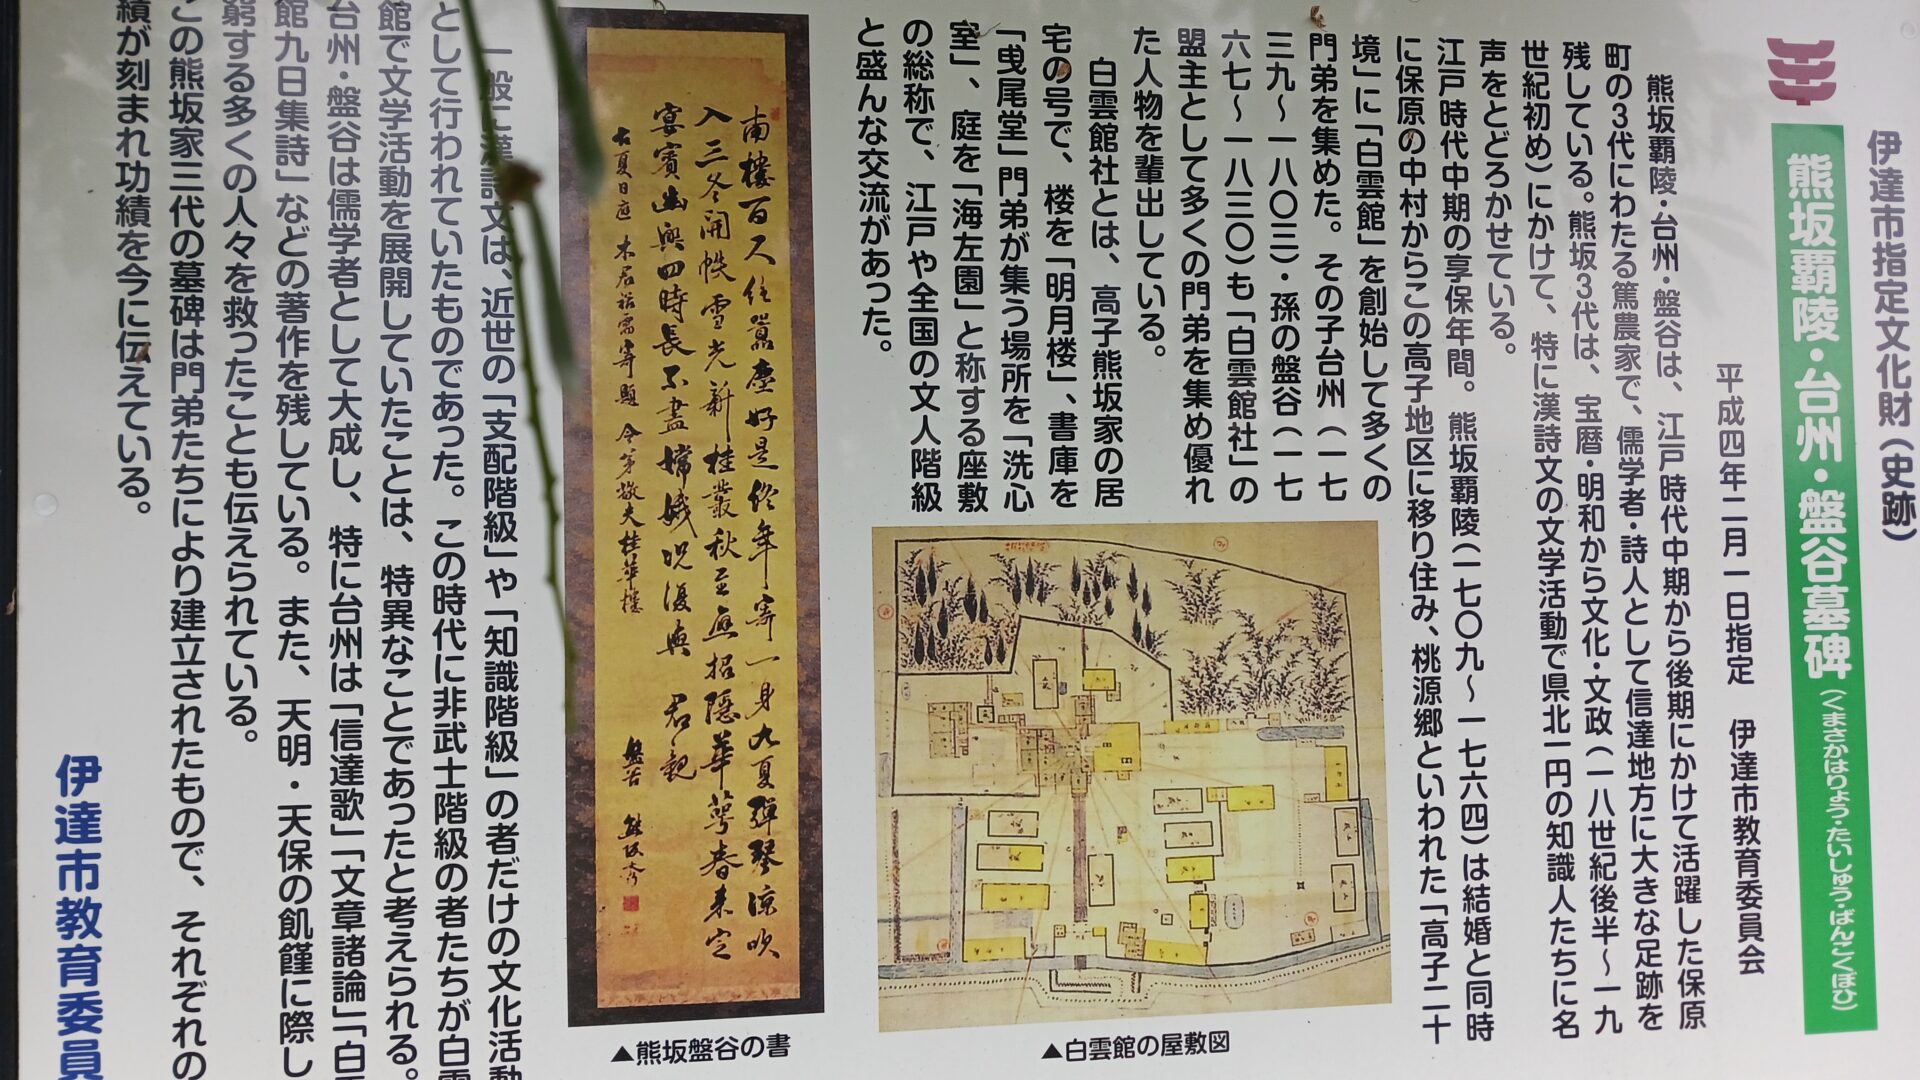 伊達市指定文化財（史跡）
熊坂覇陵・台州・盤谷墓碑（くまさかはりょう・たいしゅう・ばんこくぼひ）
平成四年二月一日指定　伊達市教育委員会
熊坂覇陵・台州・盤谷は、江戸時代中期から後期にかけて活躍した保原
町の3代にわたる篤農家で、儒学者・詩人として信達地方に大きな足跡を
残している。熊坂3代は、宝暦・明和から文化・文政（一八世紀後半～一九
世紀初め）にかけて、特に漢詩文の文学活動で県北一円の知識人たちに名
声をとどろかせている。
江戸時代中期の享保年間。熊坂覇陵（一七〇九～一七六四）は結婚と同時
に保原の中村からこの高子地区に移り住み、桃源郷といわれた「高子二十
境」に「白雲館」を創始して多くの
門弟を集めた。その子台州（一七
三九～一八〇三）・孫の盤谷（一七
六七～一八三〇）も「白雲館社」の
盟主として多くの門弟を集め優れ
た人物を輩出している。
白雲館社とは、高子熊坂家の居
宅の号で、楼を「明月楼」、書庫を
「曳尾堂」門弟が集う場所を「洗心
室」、庭を「海左園」と称する座敷
の総称で、江戸や全国の文人階級
と盛んな交流があった。
▲白雲館の屋敷図
南楼百尺住囂塵好是終年寄一身九夏弾琴涼吹
入三冬開帙雪光新桂叢秋至応招隠華萼春来定
宴賓幽興四時長不尽嫦娥況復与君親
▲熊坂盤谷の書
一般に漢詩文は、近世の「支配階級」や「知識階級」の者だけの文化活動
として行われていたものであった。この時代に非武士階級の者たちが白雲
館で文学活動を展開していたことは、特異なことであったと考えられる。
台州・盤谷は儒学者として大成し、特に台州は「信達歌」「文章諸論」「白雲
館九日集詩」などの著作を残している。また、天明・天保の飢饉に際し
窮する多くの人々を救ったことも伝えられている。
この熊坂家三代の墓碑は門弟たちにより建立されたもので、それぞれの
績が刻まれ功績を今に伝えている。
伊達市教育委員